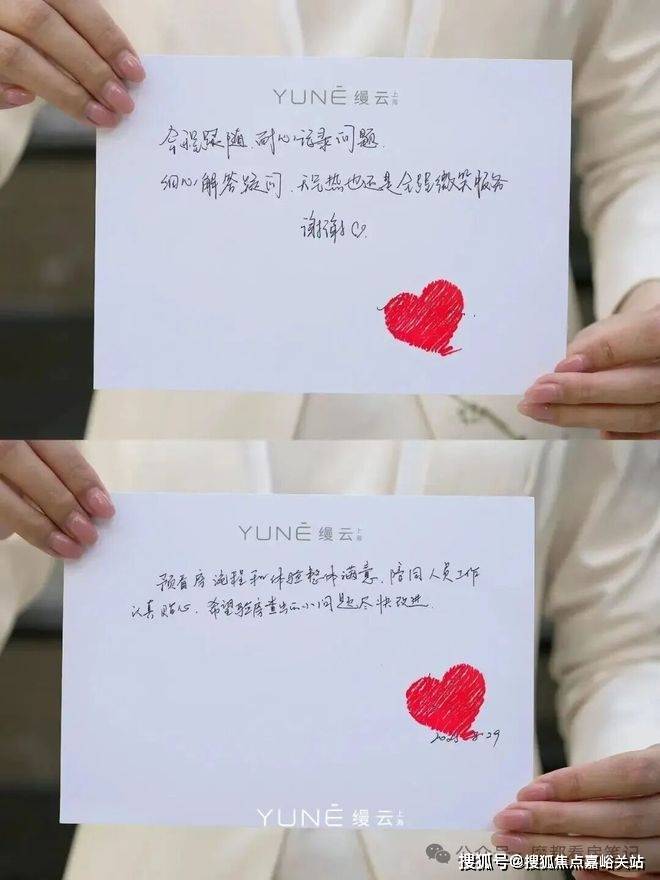 YUNÉ 缦云上海
全程跟随、耐心记录问题.
细心解答疑问、天气热也还是全程微笑服务
谢谢♡.
YUNÉ 缦云上海
预看房流程和体验整体满意、陪同人员工作
认真贴心.希望验房查出的小问题尽快改进.
29
YUNÉ 缦云上海
公众号·魔都看房笔记
搜狐号@搜狐焦点嘉峪关站